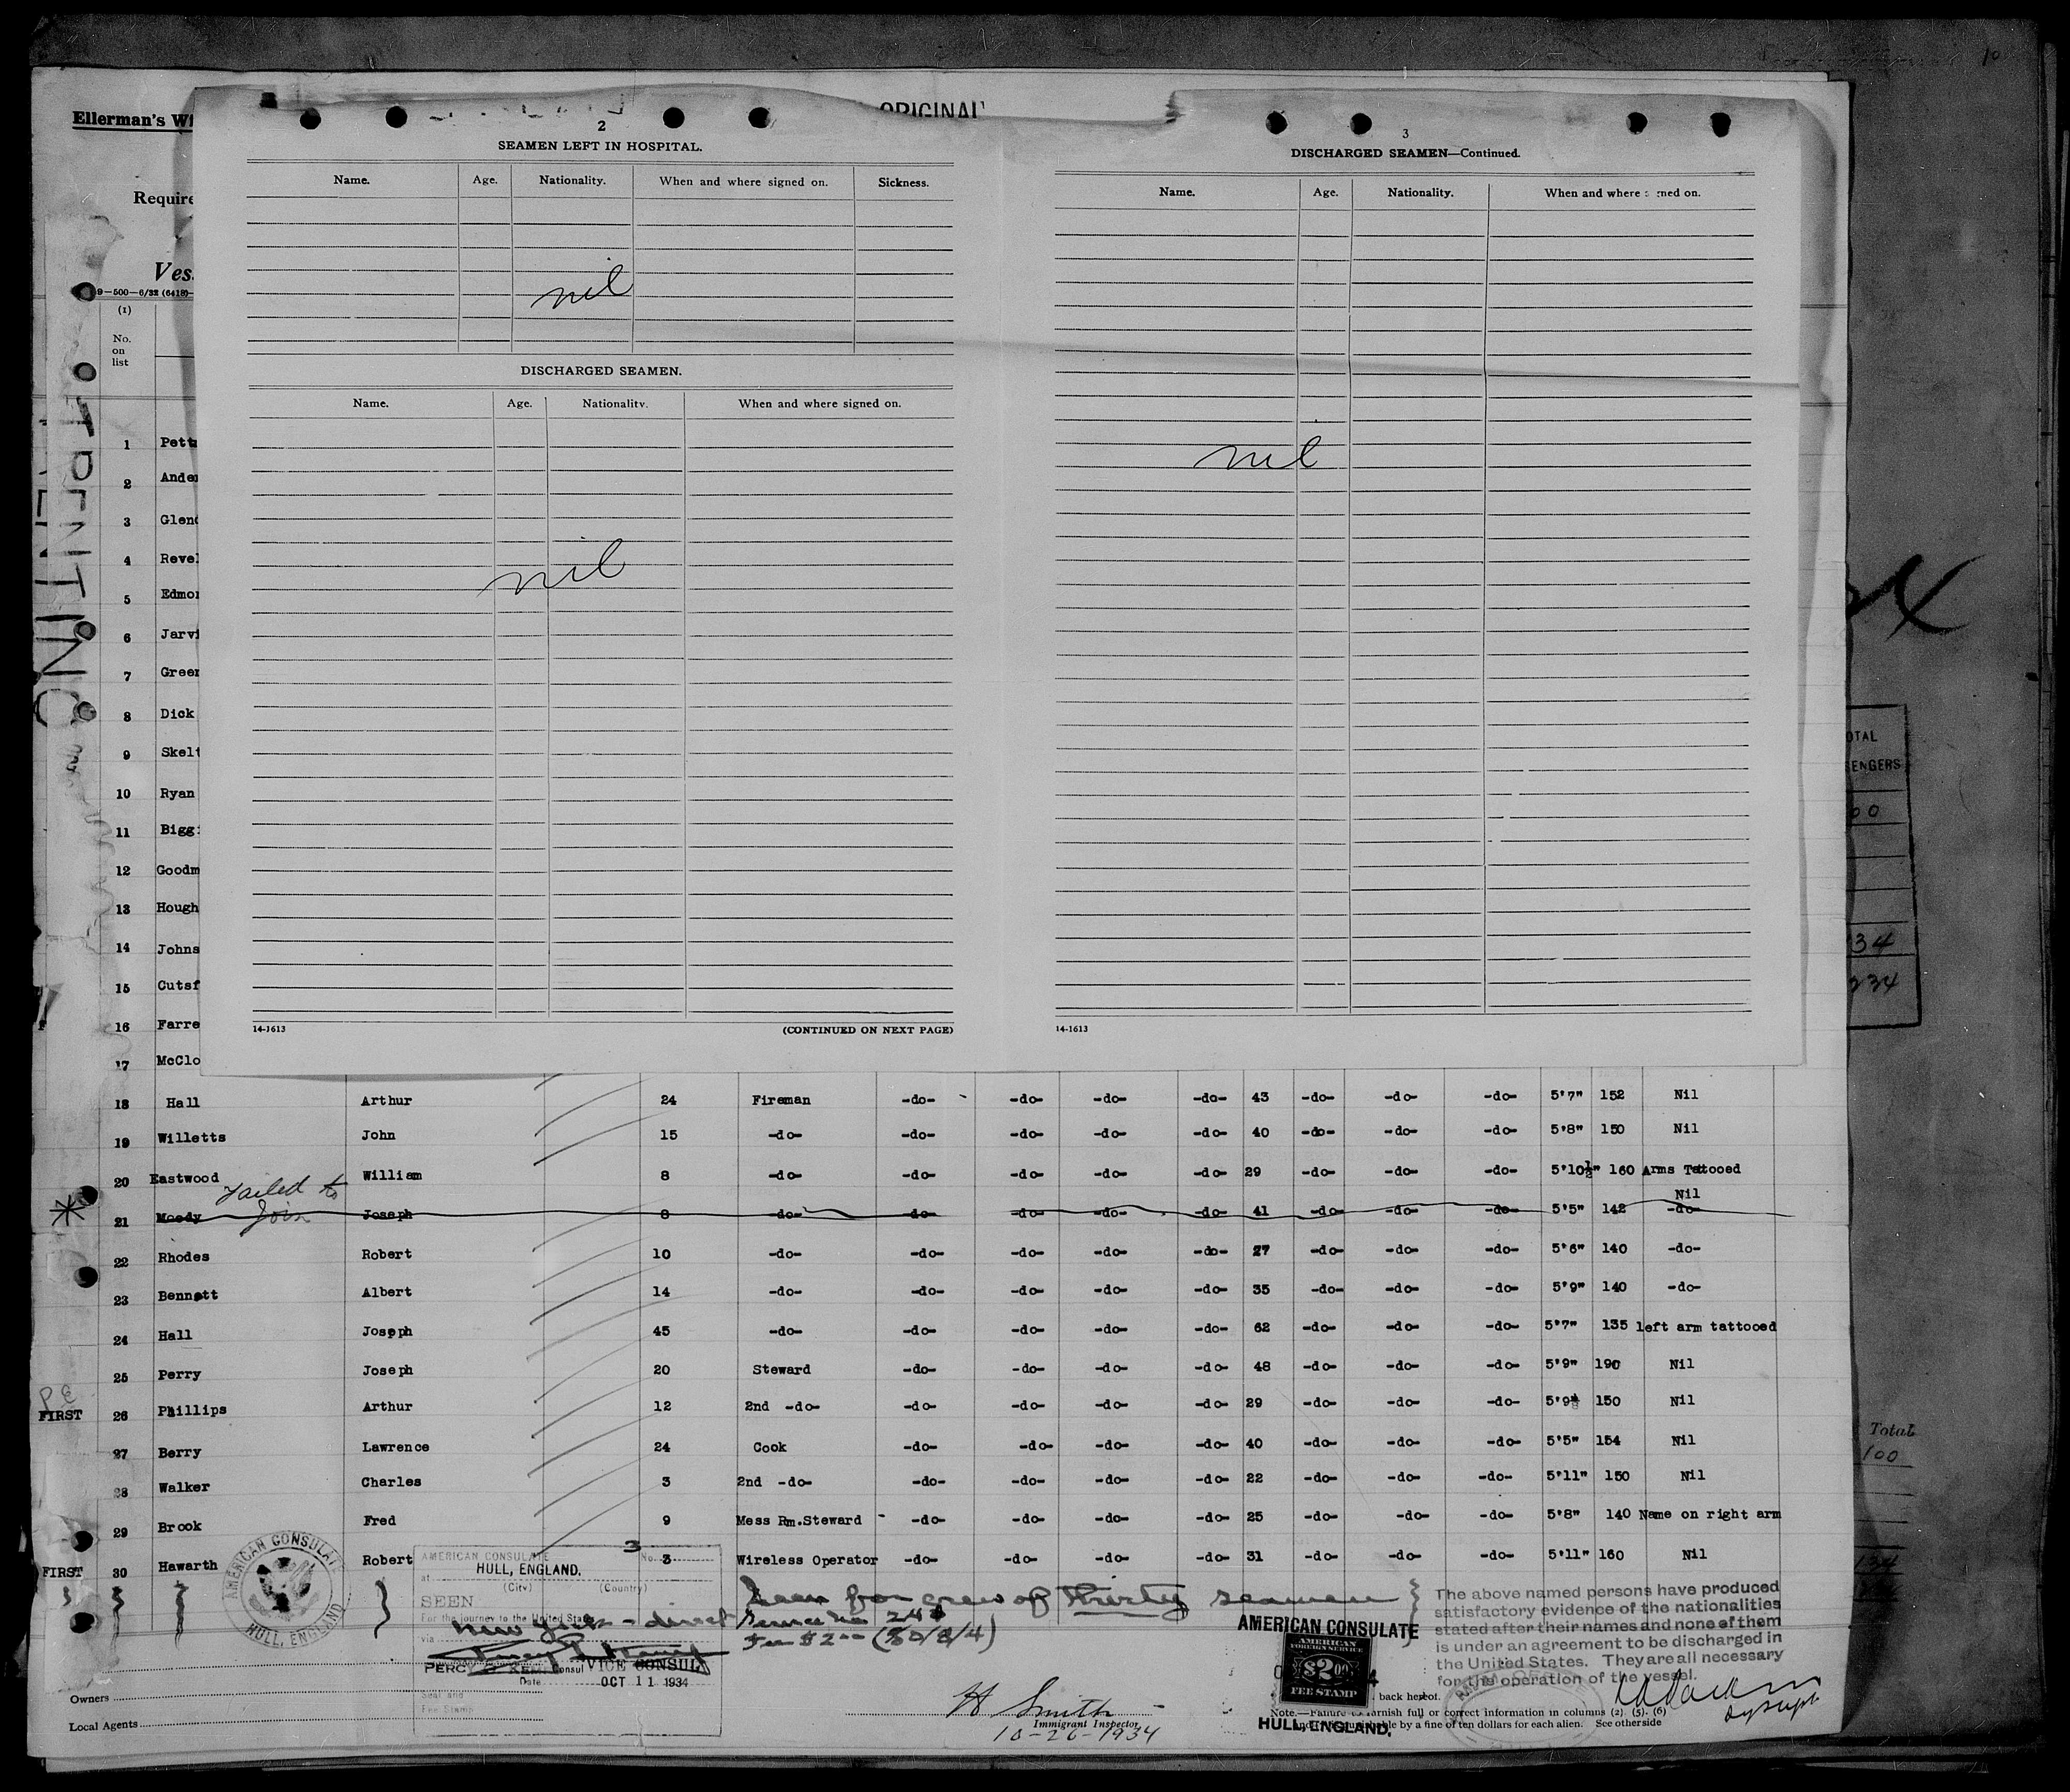 10
Ellerman's Wi
ORIGINAL
Require
Ves.
9—500—6/32 (6418)
(1)
No.
on
list
2
SEAMEN LEFT IN HOSPITAL.
Name. Age. Nationality. When and where signed on. Sickness.
nil
DISCHARGED SEAMEN.
Name. Age. Nationality. When and where signed on.
nil
14-1613 (CONTINUED ON NEXT PAGE)
3
DISCHARGED SEAMEN—Continued.
Name. Age. Nationality. When and where signed on.
nil
14-1613
1 Pett
2 Ander
3 Glen
4 Revel
5 Edmon
6 Jarvi
7 Green
8 Dick
9 Skelt
10 Ryan
11 Biggi
12 Goodm
13 Hough
14 Johns
15 Cutsf
16 Farre
17 McClo
18 Hall Arthur 24 Fireman -do- -do- -do- -do- 43 -do- -do- -do- 5'7" 152 Nil
19 Willetts John 15 -do- -do- -do- -do- -do- 40 -do- -do- -do- 5'8" 150 Nil
20 Eastwood William 8 -do- -do- -do- -do- -do- 29 -do- -do- -do- 5'10½" 160 Arms Tattooed
Failed to Join
Nil
21 Moody Joseph 8 -do- -do- -do- -do- -do- 41 -do- -do- -do- 5'5" 142 -do-
22 Rhodes Robert 10 -do- -do- -do- -do- -do- 27 -do- -do- -do- 5'6" 140 -do-
23 Bennett Albert 14 -do- -do- -do- -do- -do- 35 -do- -do- -do- 5'9" 140 -do-
24 Hall Joseph 45 -do- -do- -do- -do- -do- 62 -do- -do- -do- 5'7" 135 left arm tattooed
25 Perry Joseph 20 Steward -do- -do- -do- -do- 48 -do- -do- -do- 5'9" 190 Nil
FIRST 26 Phillips Arthur 12 2nd -do- -do- -do- -do- -do- 29 -do- -do- -do- 5'9 150 Nil
27 Berry Lawrence 24 Cook -do- -do- -do- -do- 40 -do- -do- -do- 5'5" 154 Nil
28 Walker Charles 3 2nd -do- -do- -do- -do- -do- 22 -do- -do- -do- 5'11" 150 Nil
29 Brook Fred 9 Mess Rm.Steward -do- -do- -do- -do- 25 -do- -do- -do- 5'8" 140 Name on right arm
FIRST 30 Hawarth Robert 3 Wireless Operator -do- -do- -do- -do- 31 -do- -do- -do- 5'11" 160 Nil
AMERICAN CONSULATE
HULL, ENGLAND
AMERICAN CONSULATE No. 3
at HULL, ENGLAND.
(City) (Country)
SEEN
For the journey to the United States
New York - direct
via
VICE CONSUL
Date OCT 11 1934
Seal and
Fee Stamp
Seen for crew of thirty seamen
Service No. 24
Fee $2.00 (30/8/4)
AMERICAN CONSULATE
AMERICAN
FOREIGN SERVICE
$2.00
FEE STAMP
HULL, ENGLAND.
The above named persons have produced
satisfactory evidence of the nationalities
stated after their names and none of them
is under an agreement to be discharged in
the United States. They are all necessary
for the operation of the vessel.
Owners
Local Agents
H Smith
Immigrant Inspector
10-26-1934
back hereof.
Note.—Failure to furnish full or correct information in columns (2). (5). (6)
by a fine of ten dollars for each alien. See otherside
OTAL
ENGERS
00
34
234
Total
100
134